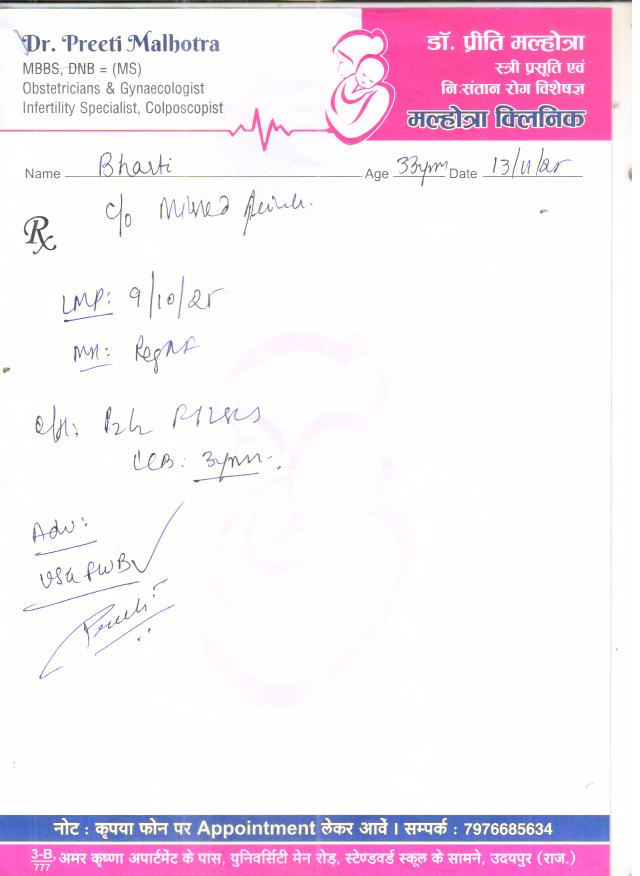 Dr. Preeti Malhotra
MBBS, DNB = (MS)
Obstetricians & Gynaecologist
Infertility Specialist, Colposcopist
डॉ. प्रीति मल्होत्रा
स्त्री प्रसूति एवं
नि:संतान रोग विशेषज्ञ
मल्होत्रा क्लिनिक
Name Bharti Age 33 Date 13/11/25
Rx
c/o Missed
LMP: 9/10/25
MH:
O/H:
LCB:
Adv:
USG FWB
नोट : कृपया फोन पर Appointment लेकर आवें । सम्पर्क : 7976685634
3-B, 777 अमर कृष्णा अपार्टमेंट के पास, युनिवर्सिटी मेन रोड़, स्टेण्डवर्ड स्कूल के सामने, उदयपुर (राज.)